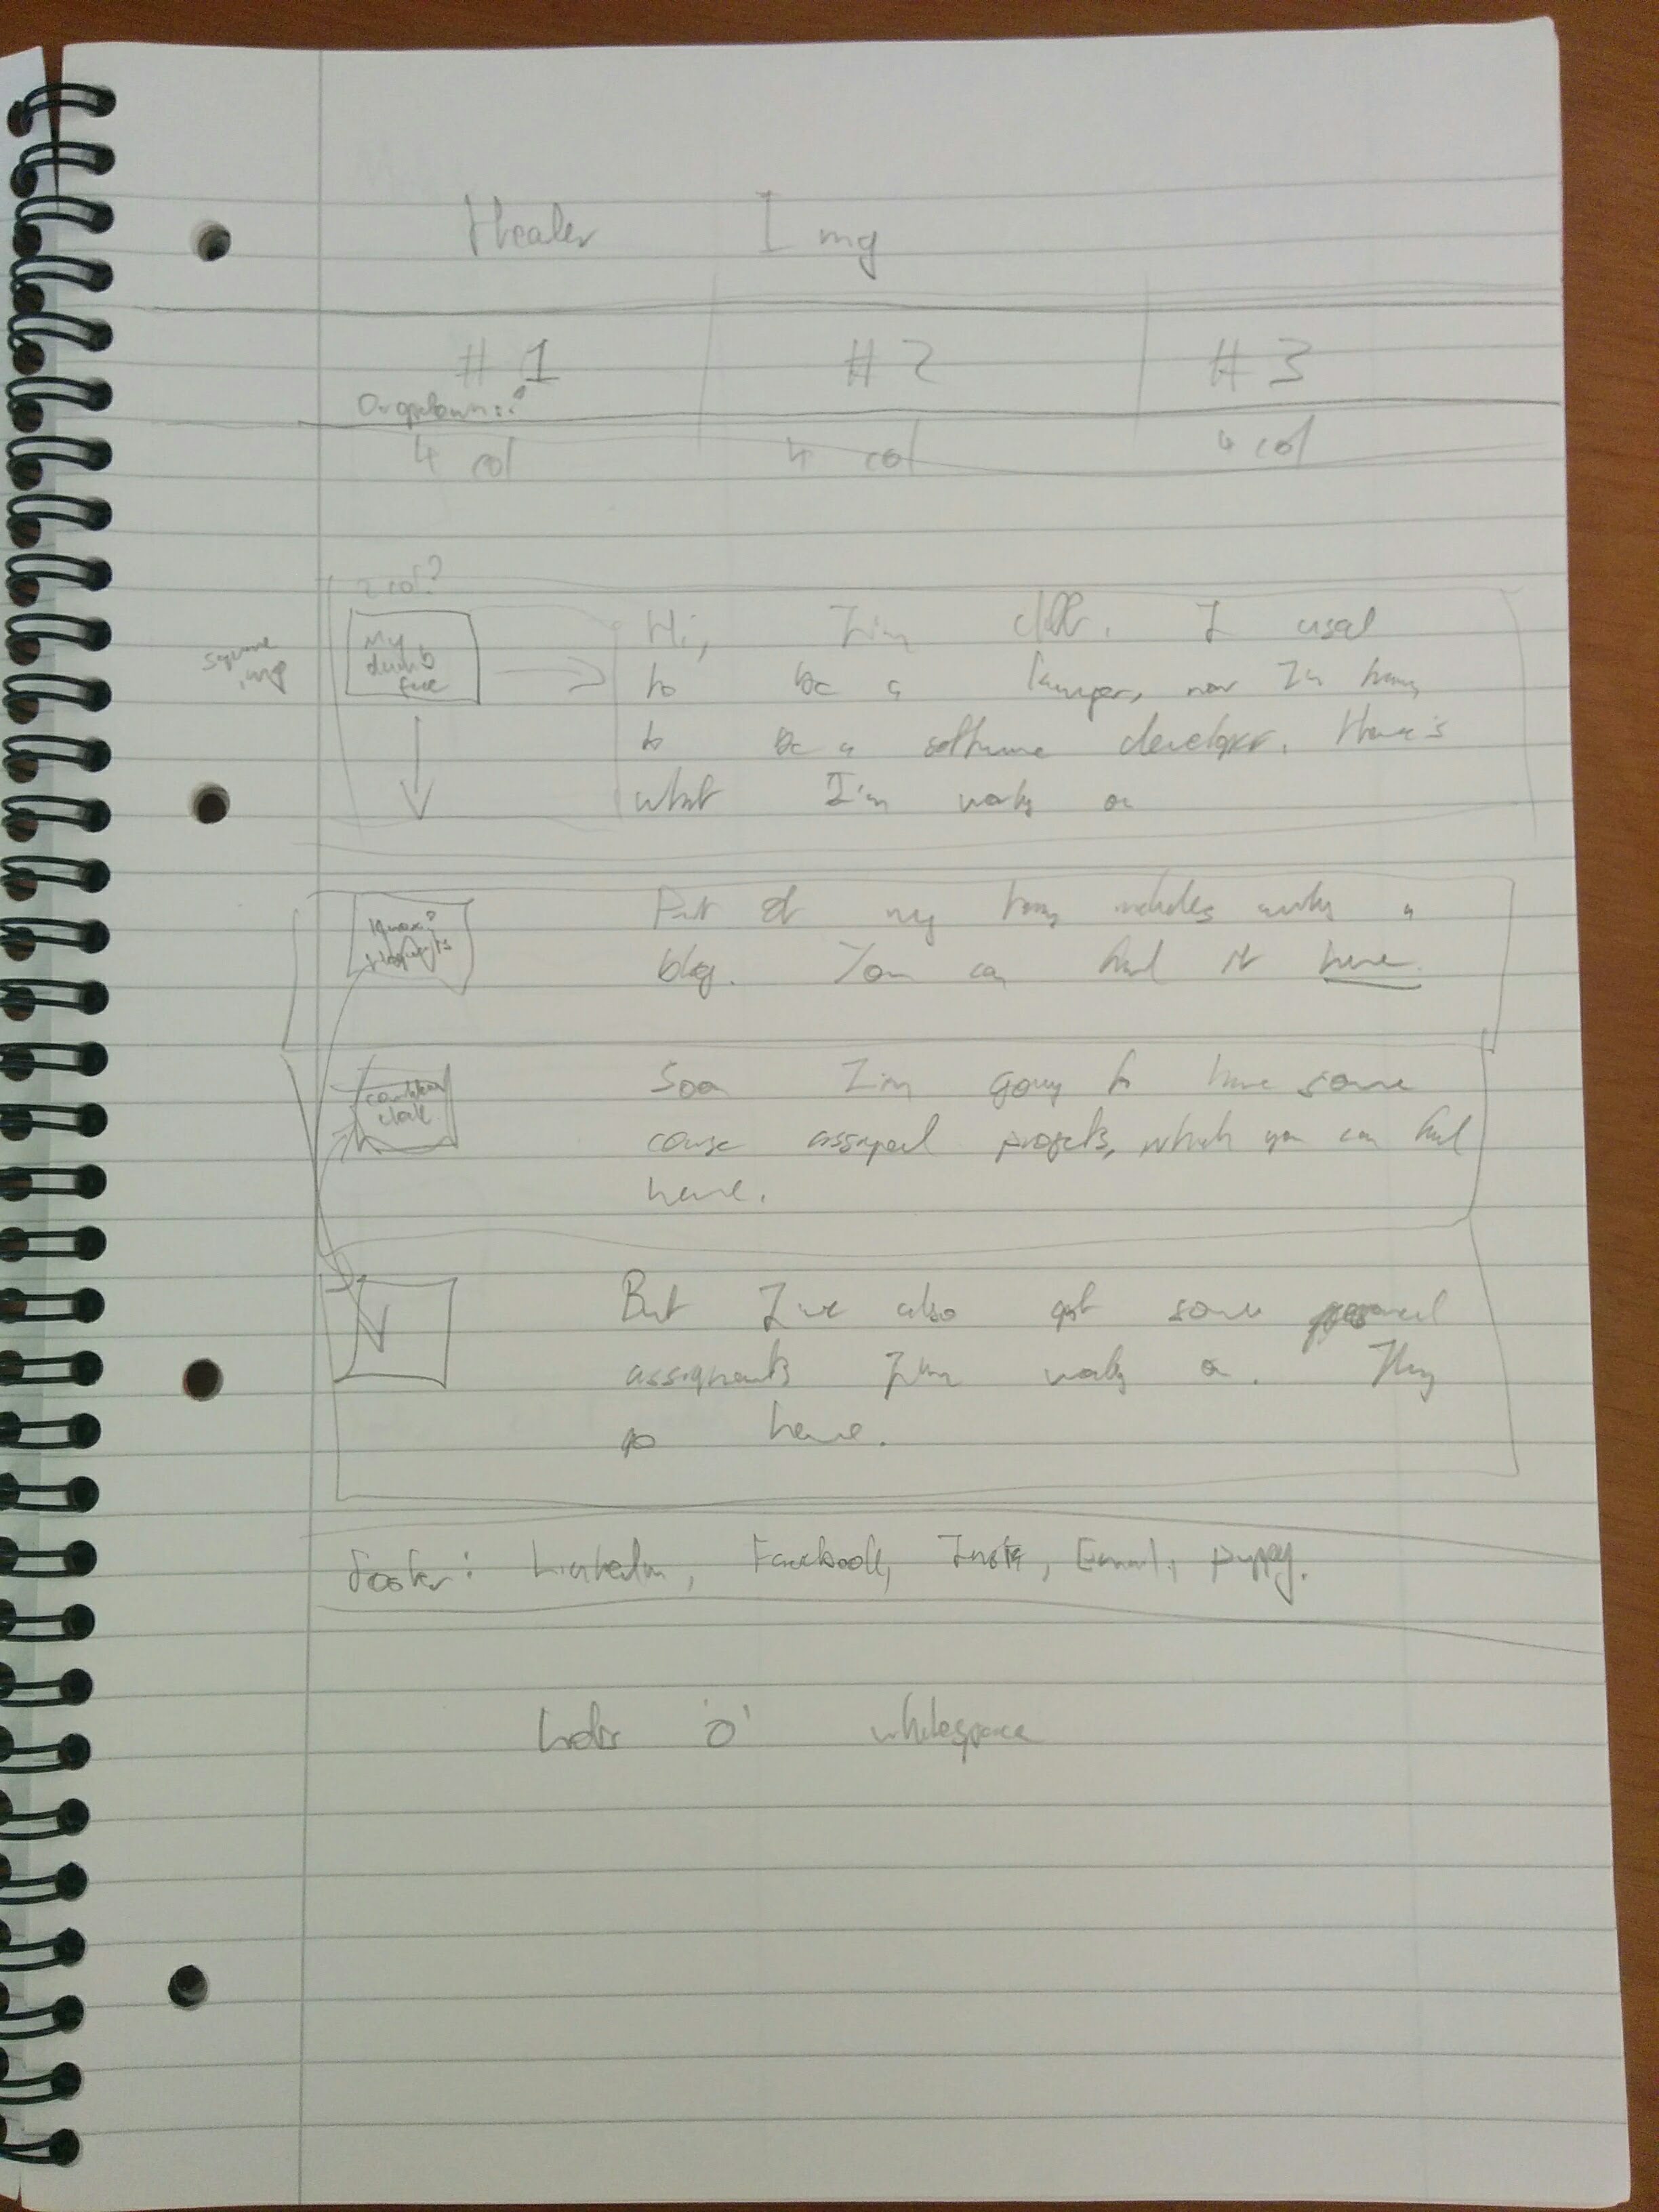 Header Img
#1 #2 #3
Dropdowns?
4 col 4 col 4 col
2 col?
square img
My
dumb
face
Hi, I'm I used
to be a now I'm
to be a software developer. Here's
what I'm working on
Part of my includes writing a
blog. You can find it here.
Soon I'm going to have some
course assigned projects, which you can find
here.
N
But I've also got some personal
assignments I'm working on. They
go here.
footer: LinkedIn, Facebook, Insta, Email, puppy.
lots 'o' whitespace